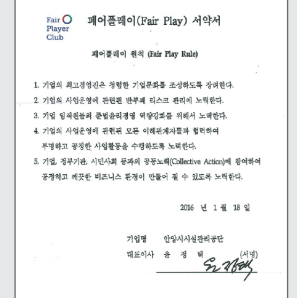 Fair
Player
Club
페어플레이(Fair Play) 서약서
페어플레이 원칙 (Fair Play Rule)
1. 기업의 최고경영진은 청렴한 기업문화를 조성하도록 장려한다.
2. 기업의 사업운영에 관련된 반부패 리스크 관리에 노력한다.
3. 기업 임직원들의 준법윤리경영 역량강화를 위해서 노력한다.
4. 기업의 사업운영에 관련된 모든 이해관계자들과 협력하여
투명하고 공정한 사업활동을 수행하도록 노력한다.
5. 기업, 정부기관, 시민사회 등과의 공동노력(Collective Action)에 참여하여
공평하고 깨끗한 비즈니스 환경이 만들어 질 수 있도록 노력한다.
2016 년 1 월 18 일
기업명 안양시시설관리공단
대표이사 윤 정 택 (서명)